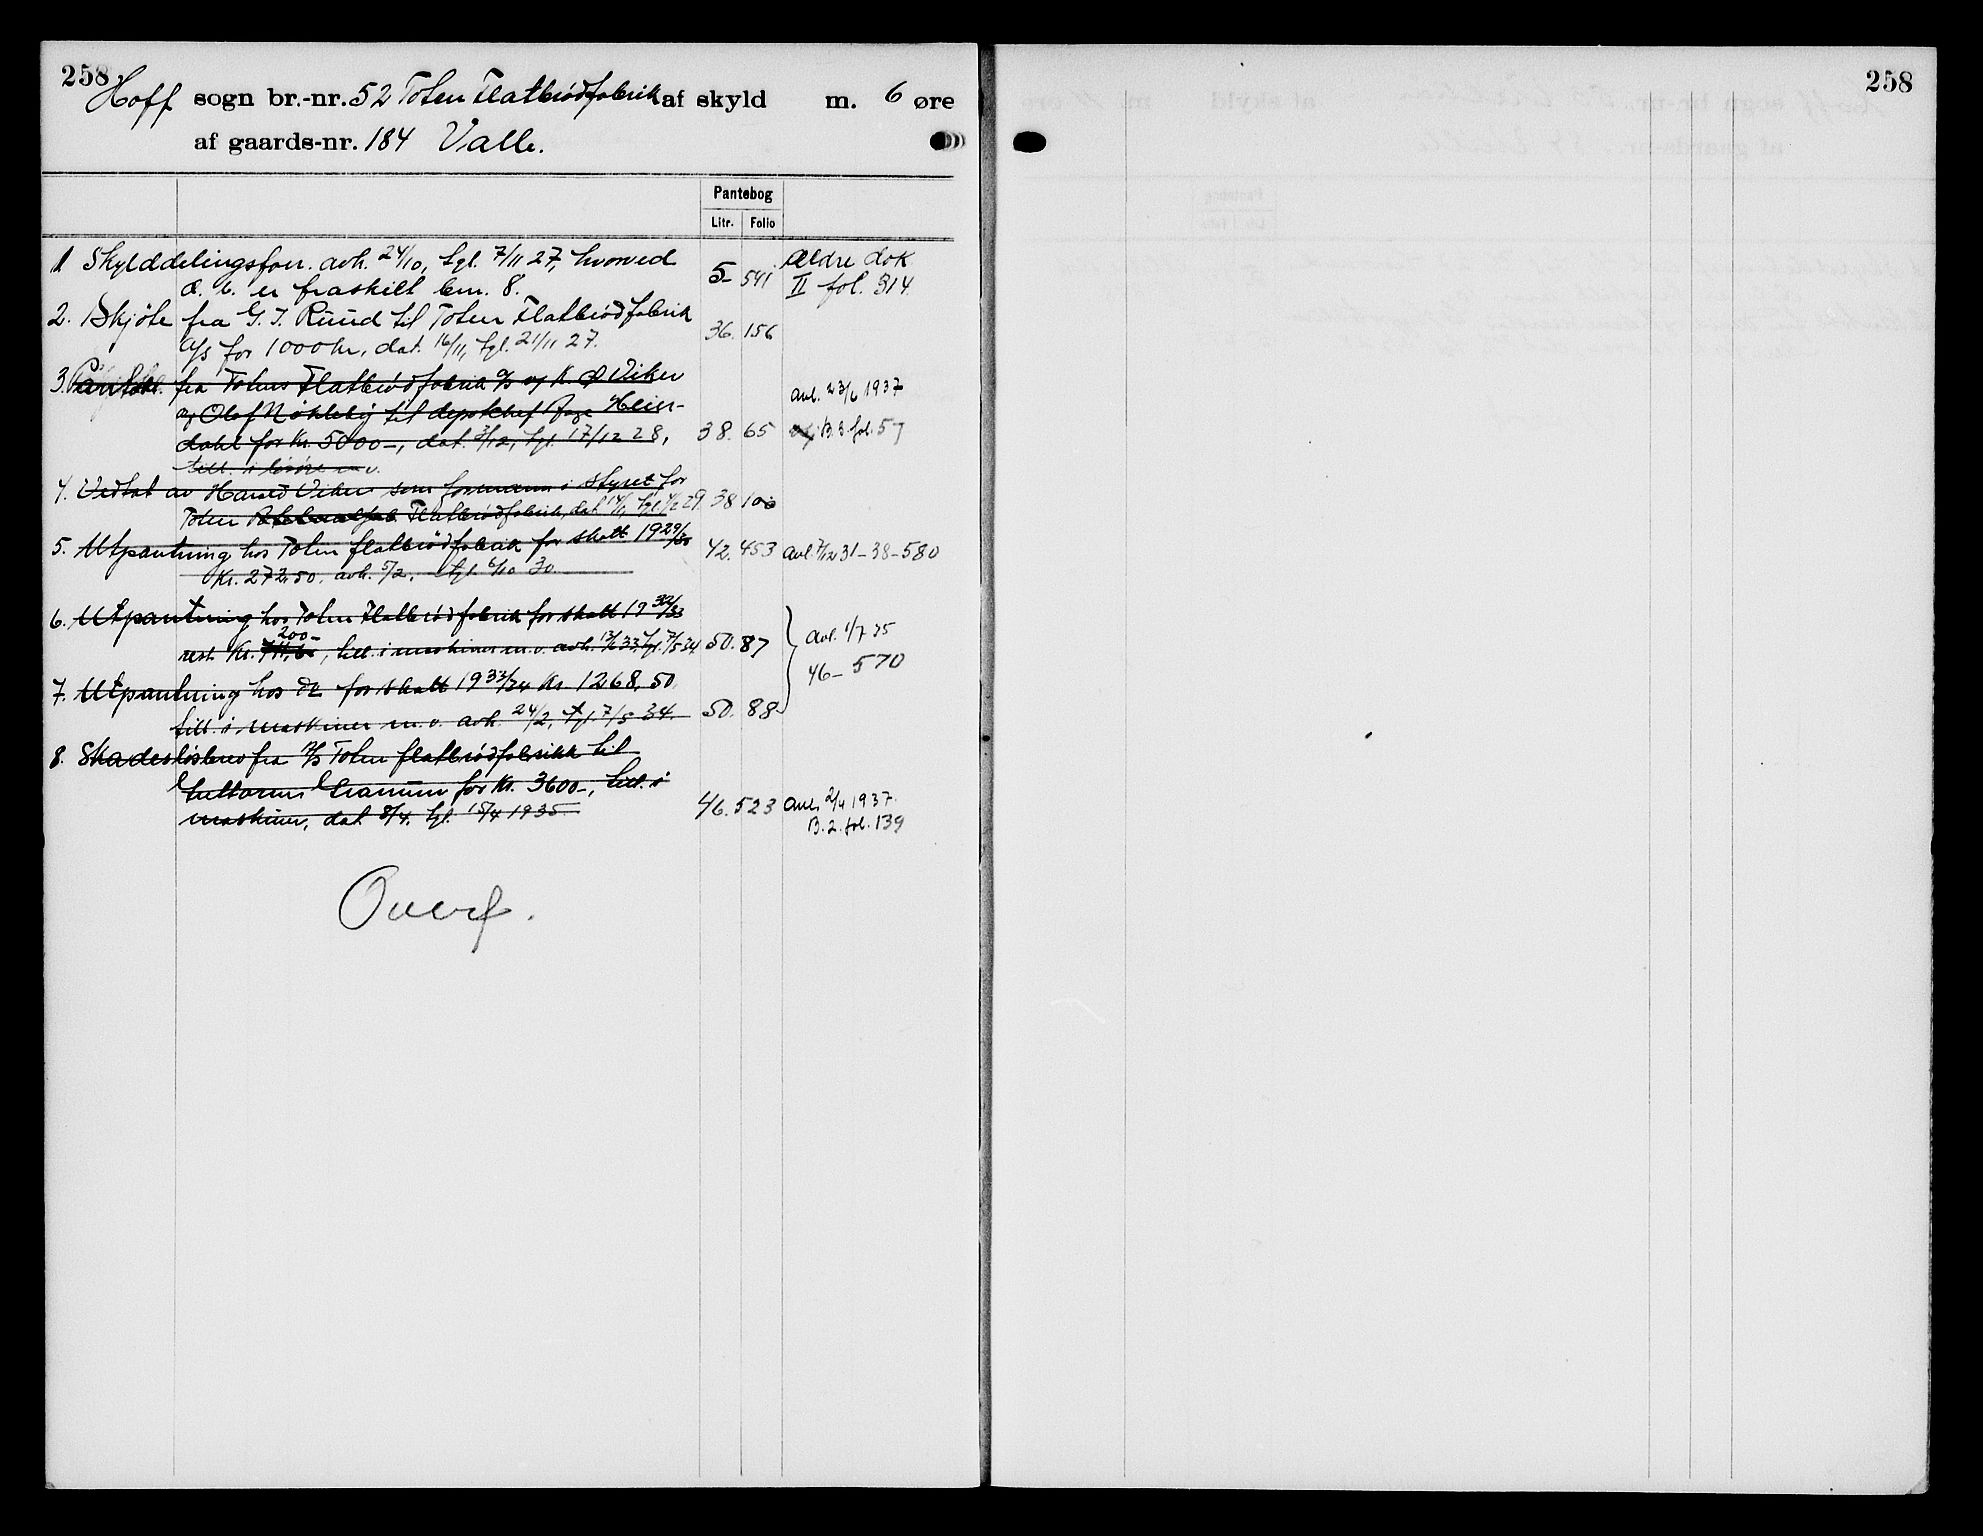 258
Hoff sogn br.-nr. 52 Toten Flatbrødfabrik af skyld m. 6 øre
af gaards-nr. 184 Valle.
258
Pantebog
Litr. Folio
1 Skylddelingsforr. avh. 24/10, tgl. 7/11 27, hvorved 5 541 Ældre dok
d. b. er fraskilt brn. 8. II fol. 314.
2. Skjøte fra G. J. Ruud til Toten Flatbrødfabrik 36. 156
A/S for 1000 kr., dat. 16/11, tgl. 21/11 27.
3. Pantobl. fra Totens Flatbrødfabrik A/S og K. O Viker avl. 23/6 1937
og Olof Nøkleby til depotchef Aage Heier-
dahl for kr. 5000-, dat. 3/12, tgl. 17/12 28, 38. 65 B.3. fol. 57
till. i løsøre m.v.
4. Vedtak av Harald Viker som formann i styret for
Toten Flatbrødfabrik, dat 14/1, tgl. 4/2 29. 38 100
5. Utpantning hos Toten flatbrødfabrik for skatt 1929/30 42. 453 avl. 7/12 31-38-580
Kr. 272.50. avh. 5/2, tgl. 6/10 30.
6. Utpantning hos Toten Flatbrødfabrik for skatt 1932/33
200-
rest kr. , till. i maskiner m.v. avh. 13/6 33 tgl. 7/5 34. 50. 87 avl. 1/7 35
46-570
7. Utpantning hos do for skatt 1933/34 kr. 1268,50
till. i maskiner m.v. avh. 24/2, tgl 7/5 34. 50. 88
8. Skadesløsbrev fra A/S Toten flatbrødfabrikk til
Guttorm Granum for kr. 3600-, till. i
maskiner, dat. 8/4. tgl. 15/4 1935 46. 523 avl. 2/4 1937.
B. 2. fol. 139
Overf.